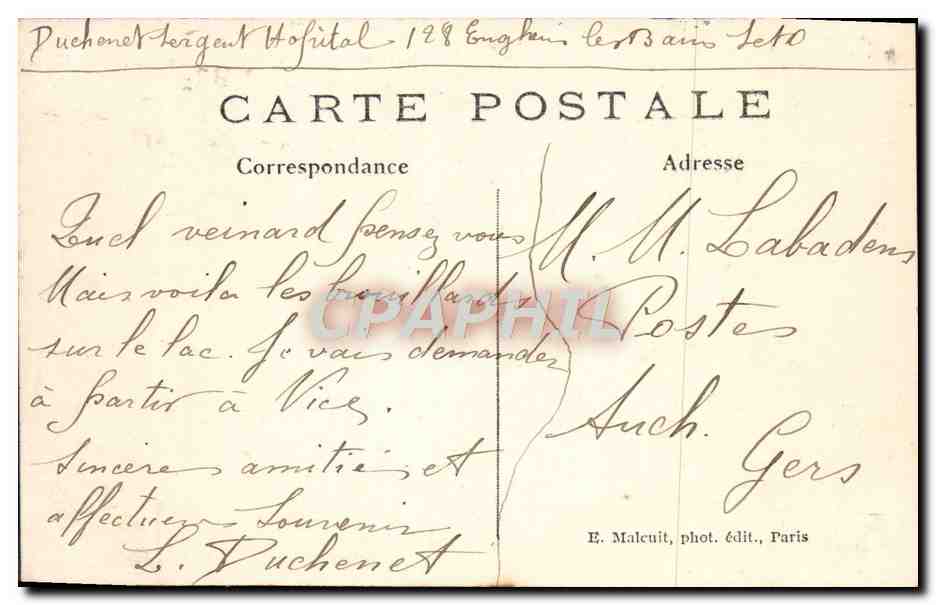 Duchenet Sergent Hôpital 128 Enghien les Bains S et O
CARTE POSTALE
Correspondance
Adresse
Quel veinard pensez vous
Mais voila les brouillards
sur le lac. Je vais demander
à partir à Nice.
Sincères amitiés et
affectueux Souvenir
L. Duchenet
M. M. Labadens
Postes
Auch.
Gers
E. Malcuit, phot. édit., Paris
CPAPHIL